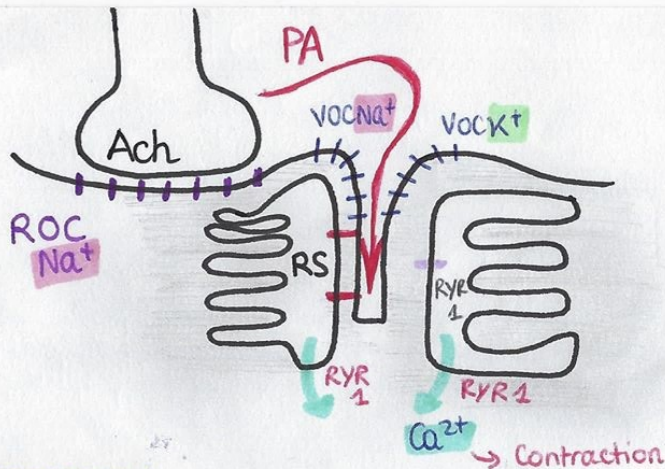 PA
VOCNa⁺
VOCK⁺
Ach
ROC
Na⁺
RS
RYR
1
RYR
1
RYR1
Ca²⁺
→ Contraction